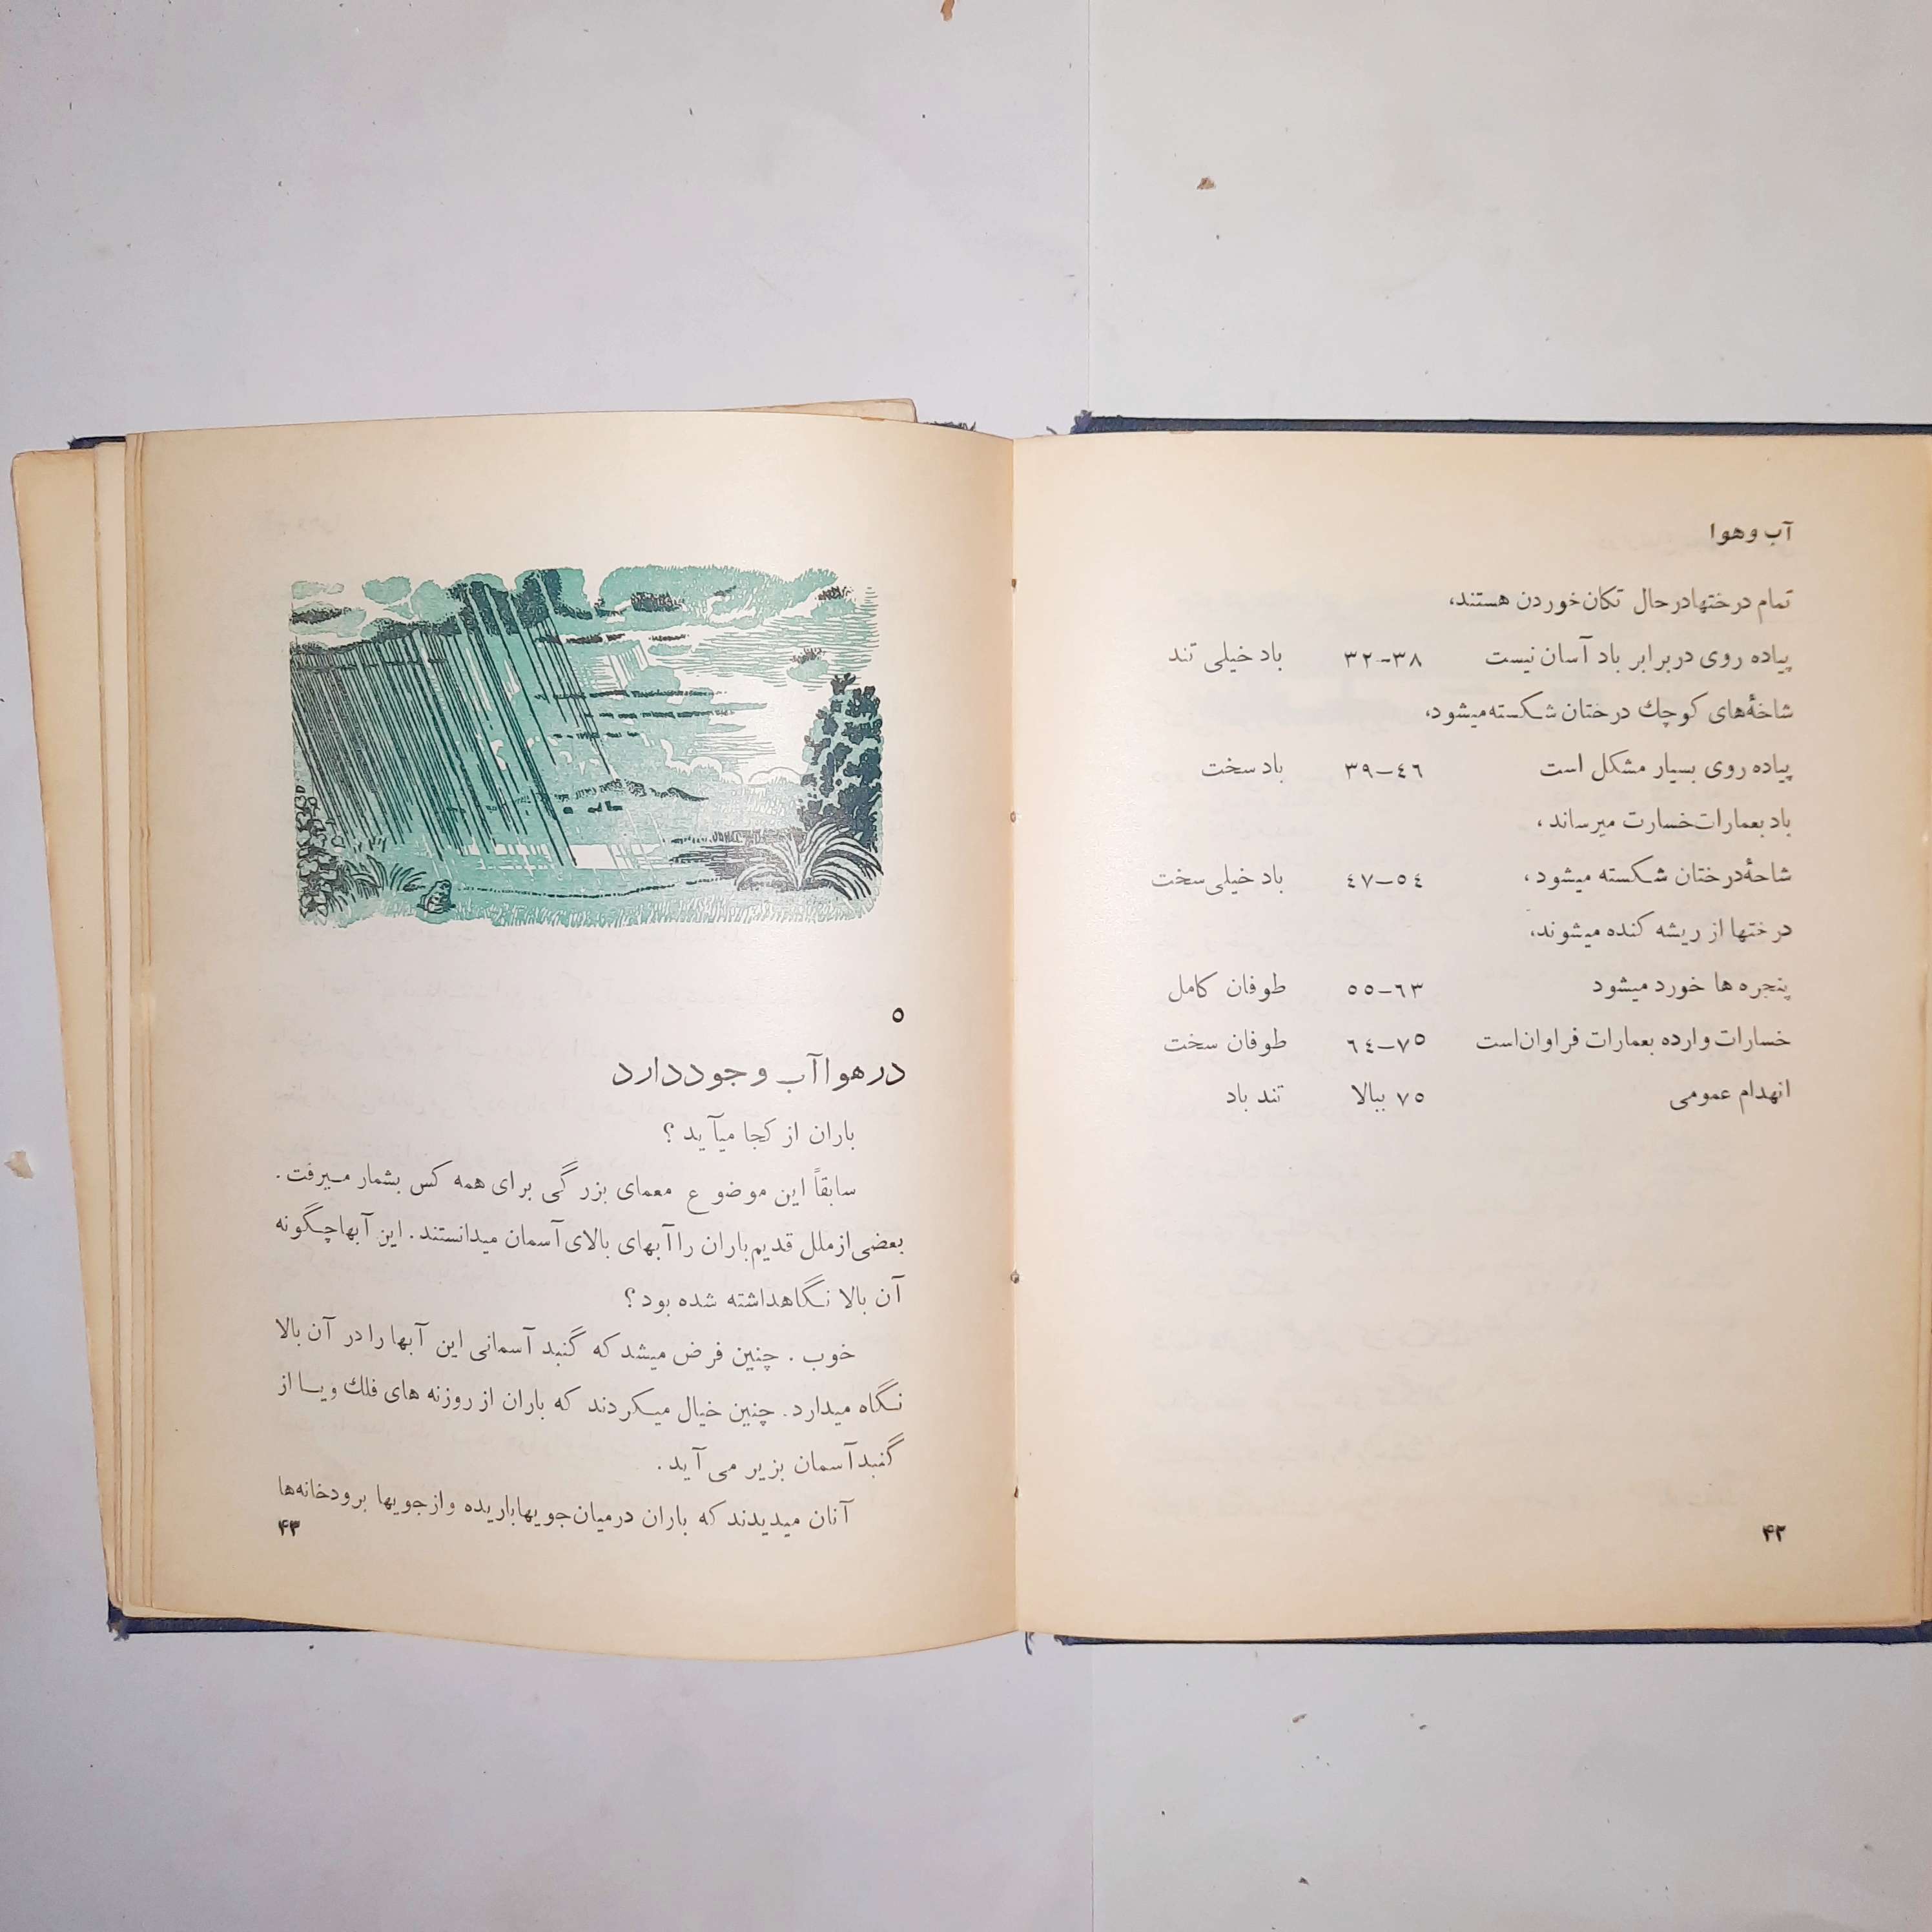 آب و هوا
تمام درختها در حال تکان خوردن هستند،
پیاده روی در برابر باد آسان نیست ۳۲-۳۸ باد خیلی تند
شاخهٔ‌های کوچك درختان شکسته میشود،
پیاده روی بسیار مشکل است ۳۹-٤٦ باد سخت
باد بعمارات خسارت میرساند،
شاحهٔ درختان شکسته میشود، ٤۷-٥٤ باد خیلی سخت
درختها از ریشه کنده میشوند،
پنجره ها خورد میشود ٥٥-٦۳ طوفان کامل
خسارات وارده بعمارات فراوان است ٦٤-۷٥ طوفان سخت
انهدام عمومی ۷٥ ببالا تند باد
۴۲
٥
در هوا آب وجود دارد
باران از کجا میآید ؟
سابقاً این موضوع معمای بزرگی برای همه کس بشمار میرفت.
بعضی از ملل قدیم باران را آبهای بالای آسمان میدانستند. این آبها چگونه
آن بالا نگاهداشته شده بود ؟
خوب. چنین فرض میشد که گنبد آسمانی این آبها را در آن بالا
نگاه میدارد. چنین خیال میکردند که باران از روزنه های فلك و یا از
گنبد آسمان بزیر می آید.
آنان میدیدند که باران در میان جویها باریده و از جویها برودخانه‌ها
۴۳